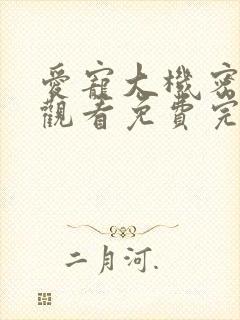 愛寵大機密
觀看免費完
二月河.